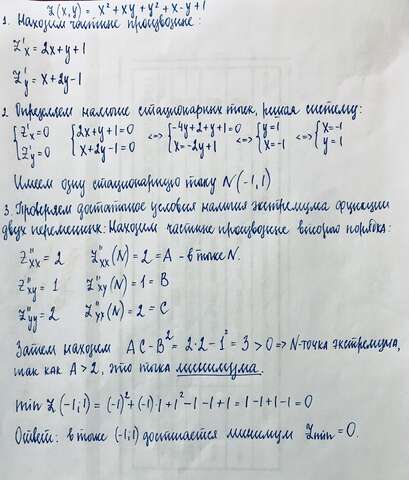 Z(x,y) = x² + xy + y² + x - y + 1
1. Находим частные производные:
Z'x = 2x+y+1
Z'y = x+2y-1
2. Определяем наличие стационарных точек, решая систему:
{Z'x=0 {2x+y+1=0 <=> {-4y+2+y+1=0 <=> {y=1 <=> {x=-1
{Z'y=0 {x+2y-1=0 {x=-2y+1 {x=-1 {y=1
Имеем одну стационарную точку N(-1,1)
3. Проверяем достаточное условия наличия экстремума функции
двух переменных: Находим частные производные второго порядка:
Z''xx = 2 Z''xx(N) = 2 = A - в точке N.
Z''xy = 1 Z''xy(N) = 1 = B
Z''yy = 2 Z''yy(N) = 2 = C
Затем находим AC-B² = 2·2-1² = 3 > 0 => N-точка экстремума,
так как A > 2, это точка минимума.
min Z(-1;1) = (-1)²+(-1)·1+1²-1-1+1 = 1-1+1-1 = 0
Ответ: в точке (-1;1) достигается минимум Zmin = 0.